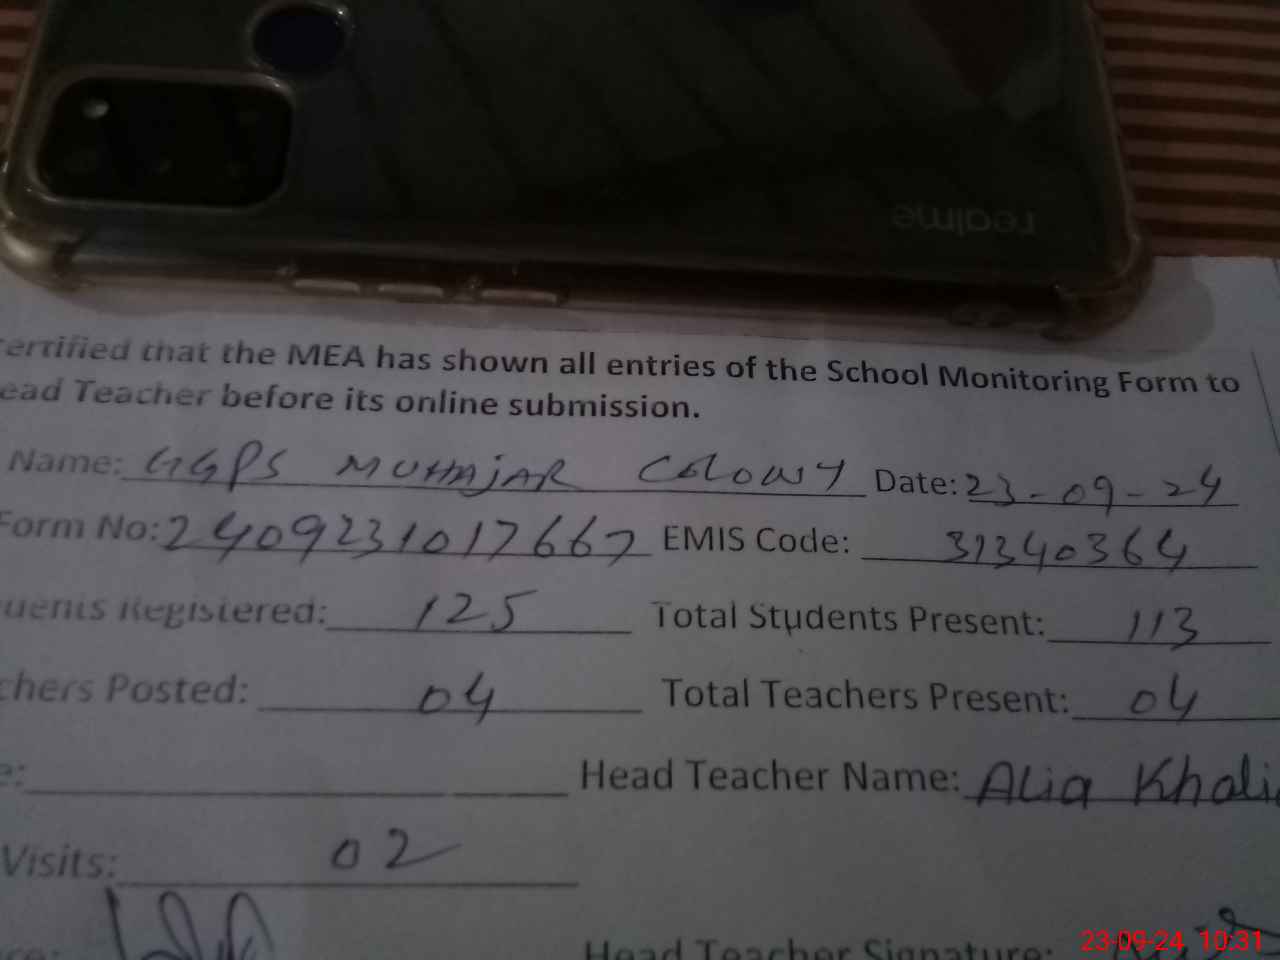 realme
ertified that the MEA has shown all entries of the School Monitoring Form to
ead Teacher before its online submission.
Name: GGPS MUHAJAR COLONY Date: 23-09-24
Form No: 2409231017667 EMIS Code: 31340364
uents Registered: 125 Total Students Present: 113
chers Posted: 04 Total Teachers Present: 04
e: Head Teacher Name: Alia Khali
Visits: 02
Head Teacher Signature:
23-09-24 10:31